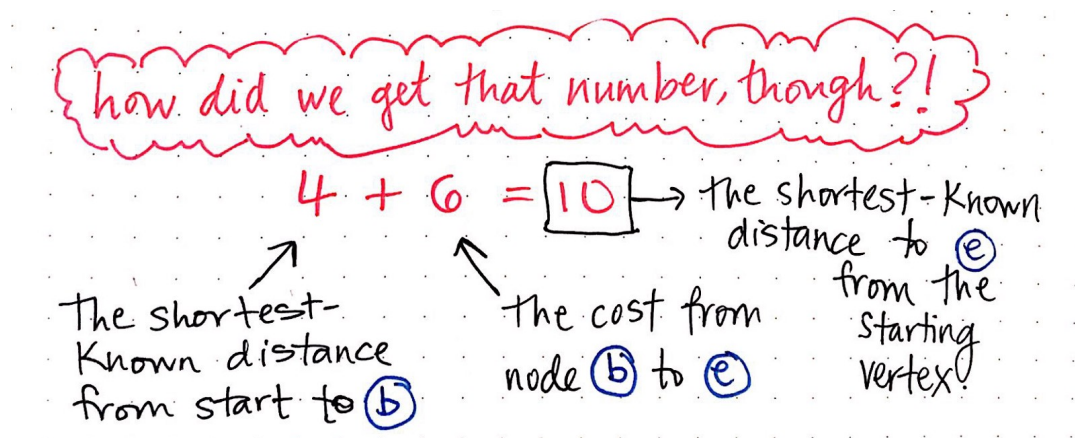 how did we get that number, though?!
4 + 6 = 10 → the shortest-known
distance to e
from the
starting
vertex!
The shortest-
known distance
from start to b
The cost from
node b to e